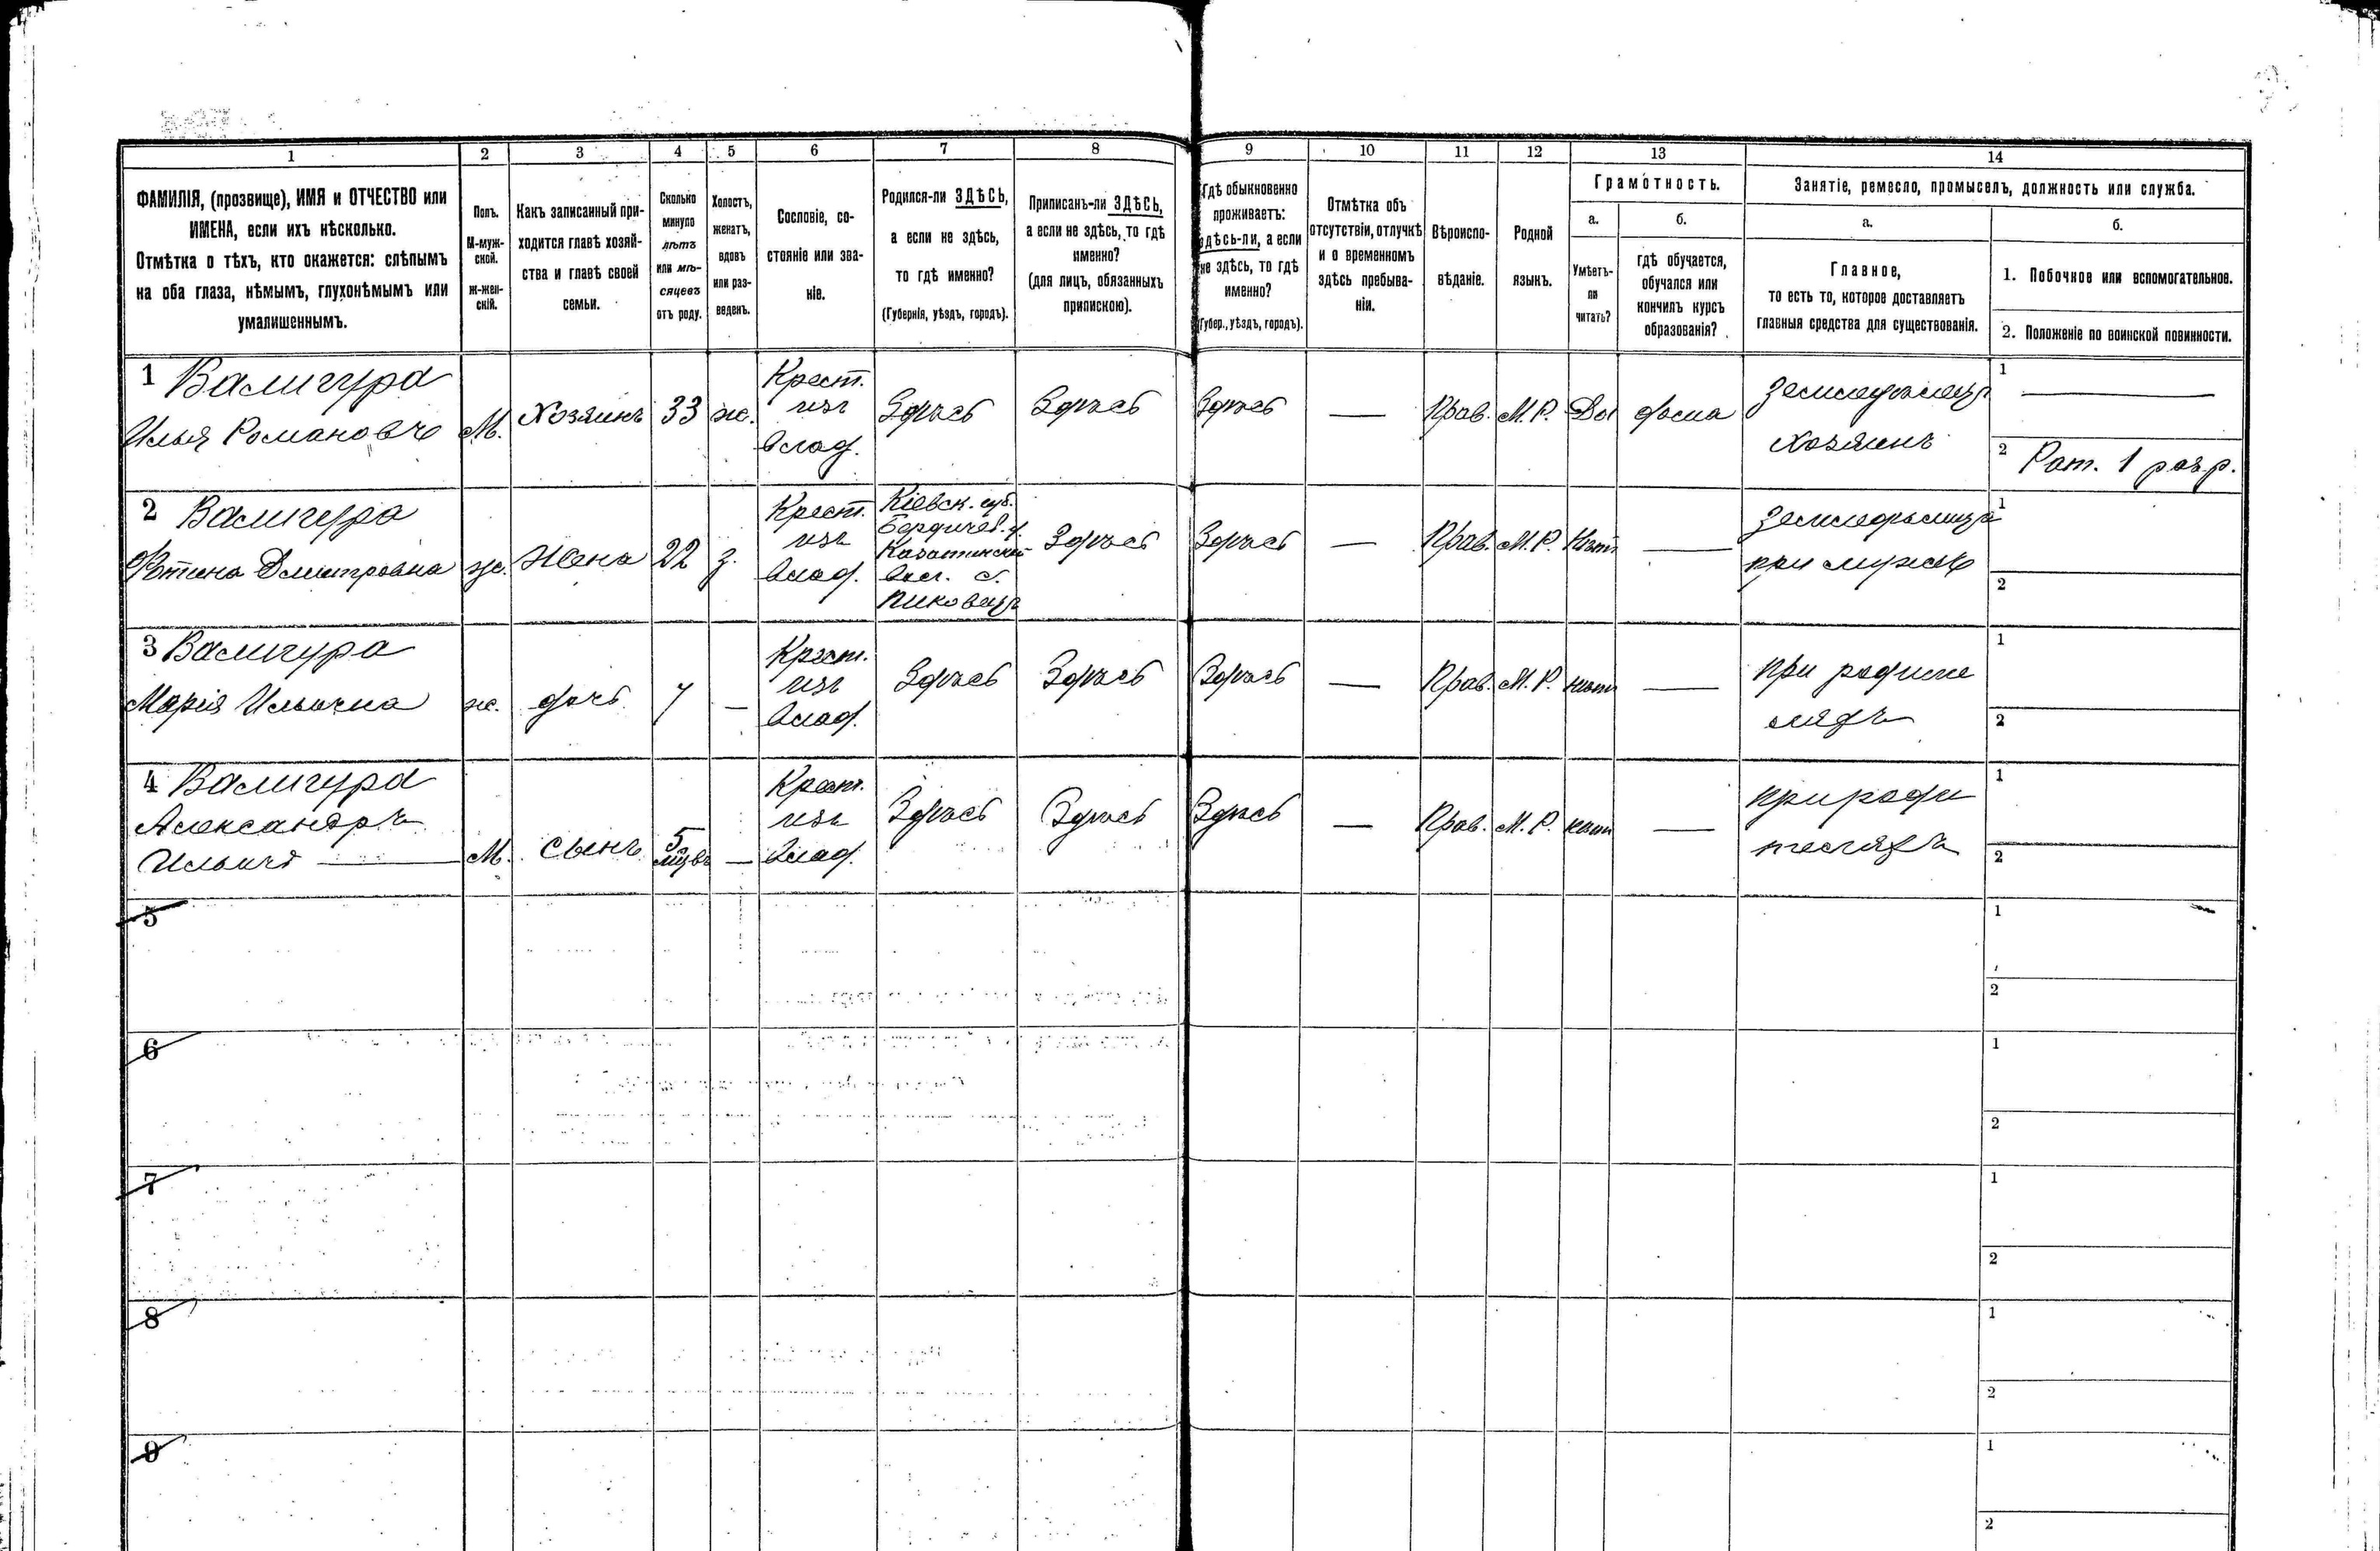 1
2
3
4
5
6
7
8
9
10
11
12
13
14
ФАМИЛІЯ, (прозвище), ИМЯ и ОТЧЕСТВО или
ИМЕНА, если ихъ нѣсколько.
Отмѣтка о тѣхъ, кто окажется: слѣпымъ
на оба глаза, нѣмымъ, глухонѣмымъ или
умалишеннымъ.
Полъ.
М-муж-
ской.
ж-жен-
скій.
Какъ записанный при-
ходится главѣ хозяй-
ства и главѣ своей
семьи.
Сколько
минуло
лѣтъ
или мѣ-
сяцевъ
отъ роду.
Холостъ,
женатъ,
вдовъ
или раз-
веденъ.
Сословіе, со-
стояніе или зва-
ніе.
Родился-ли ЗДѢСЬ,
а если не здѣсь,
то гдѣ именно?
(Губернія, уѣздъ, городъ).
Приписанъ-ли ЗДѢСЬ,
а если не здѣсь, то гдѣ
именно?
(для лицъ, обязанныхъ
припискою).
Гдѣ обыкновенно
проживаетъ:
здѣсь-ли, а если
не здѣсь, то гдѣ
именно?
(Губер., уѣздъ, городъ).
Отмѣтка объ
отсутствіи, отлучкѣ
и о временномъ
здѣсь пребыва-
ніи.
Вѣроиспо-
вѣданіе.
Родной
языкъ.
Грамотность.
а.
Умѣетъ-
ли
читать?
б.
гдѣ обучается,
обучался или
кончилъ курсъ
образованія?
Занятіе, ремесло, промыселъ, должность или служба.
а.
Главное,
то есть то, которое доставляетъ
главныя средства для существованія.
б.
1. Побочное или вспомогательное.
2. Положеніе по воинской повинности.
1 Валигура
Илья Романовъ
М.
Хозяинъ
33
ж.
Крест.
изъ
влад.
Здѣсь
Здѣсь
Здѣсь
—
Прав.
М. Р.
Да
дома
Земледѣлецъ
Хозяинъ
1 —
2 Рат. 1 разр.
2 Валигура
Фотина Дмитровна
ж.
Жена
22
з.
Крест.
изъ
влад.
Кіевск. губ.
Бердичев. у.
Казатинской
вол. с.
Пиковецъ
Здѣсь
Здѣсь
—
Прав.
М. Р.
Нѣтъ
—
Земледѣлица
при мужѣ
1
2
3 Валигура
Марія Ильична
ж.
дочь
7
—
Крест.
изъ
влад.
Здѣсь
Здѣсь
Здѣсь
—
Прав.
М. Р.
нѣтъ
—
при родите
ляхъ
1
2
4 Валигура
Александръ
Ильичъ —
М.
сынъ
5
мцвъ
—
Крест.
изъ
влад.
Здѣсь
Здѣсь
Здѣсь
—
Прав.
М. Р.
нѣтъ
—
при роди
теляхъ
1
2
5
1
2
6
1
2
7
1
2
8
1
2
9
1
2